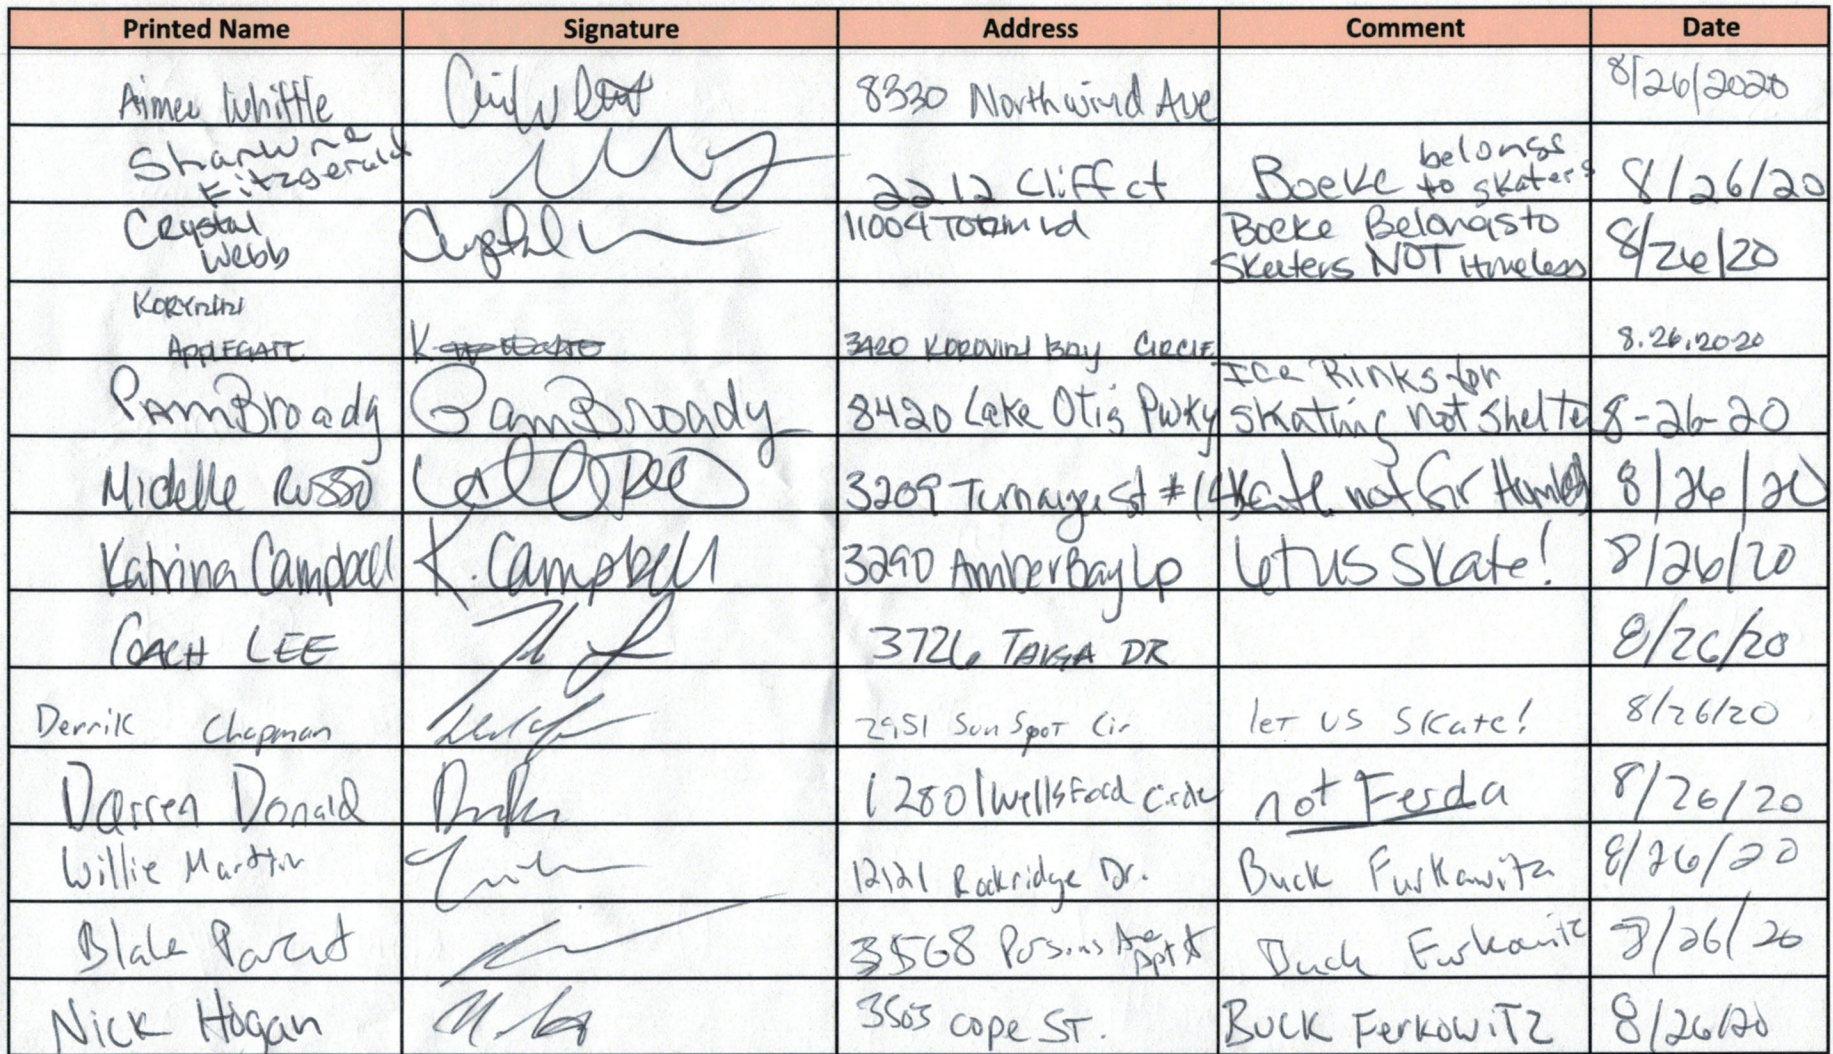 Printed Name Signature Address Comment Date
Aimee Whittle 8330 Northwind Ave 8/26/2020
Shanwna Fitzgerald 2212 Cliff ct Boeke belongs to skaters 8/26/20
Crystal Webb 11004 Totem rd Boeke Belongs to Skaters NOT Homeless 8/26/20
APPLEGATE K 3420 KOROVIN BAY CIRCLE 8.26.2020
Pam Broady Pam Broady 8420 Lake Otis Pwky Ice Rinks for skating not Shelter 8-26-20
Michelle Russo 3209 St # Skate not for 8/26/20
Katrina Campbell K. Campbell 3290 Amber Bay Lp Let us Skate! 8/26/20
COACH LEE 3726 TAIGA DR 8/26/20
Derrik Chapman 2951 Sun Spot Cir let US Skate! 8/26/20
Darren Donald 12801 Wellsford Circle not Ferda 8/26/20
Willie Martin 12121 Rockridge Dr. Buck Furkowitz 8/26/20
Blake Parent 3568 Apt Buck Furkowitz 8/26/20
Nick Hogan 3505 Cope ST. BUCK FERKOWITZ 8/26/20